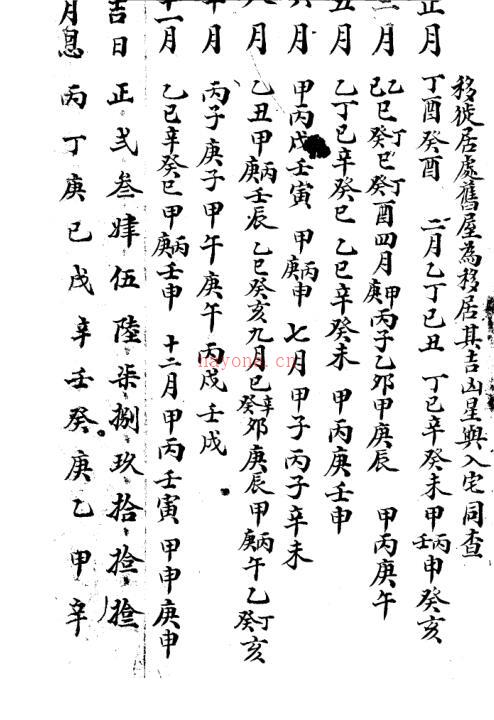 移徙居處舊屋為移居其吉凶星與入宅同查
正月 丁酉癸酉 二月乙丁己丑 丁己辛癸未甲丙壬申癸亥
三月 乙己巳癸丁巳癸丁酉四月甲庚丙子乙卯甲庚辰 甲丙庚午
五月 乙丁巳辛癸巳 乙巳辛癸未 甲丙庚壬申
六月 甲丙戊壬寅 甲丙庚申 七月甲子丙子辛未
八月 乙丑甲丙庚壬辰 乙巳癸亥九月巳辛癸卯庚辰甲丙庚午乙丁癸亥
十月 丙子庚子甲午庚午丙戌壬戌
十一月 乙巳辛癸巳甲丙庚壬申 十二月甲丙壬寅 甲申庚申
吉日 正弍叁肆伍陸柒捌玖拾拾拾
月恩 丙丁庚己戊辛壬癸庚乙甲辛
nayona.cn